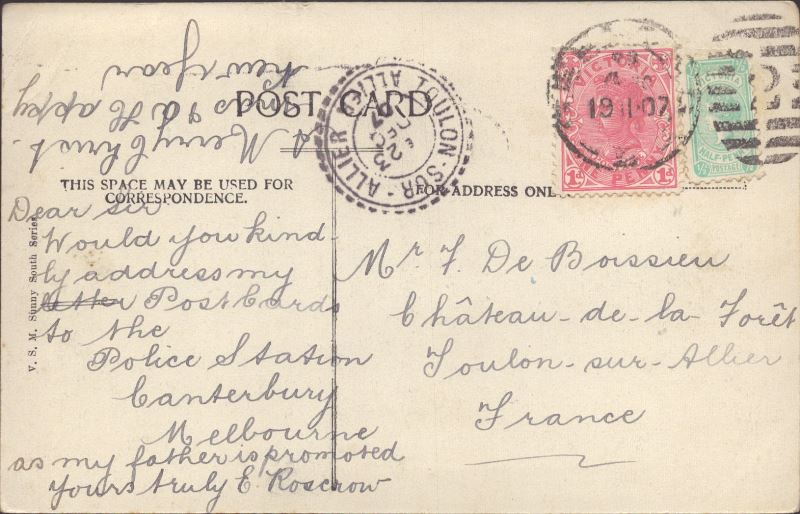 POST CARD
THIS SPACE MAY BE USED FOR
CORRESPONDENCE.
FOR ADDRESS ONL
V. S. M. Sunny South Series
A Merry Christ-
mas & a Happy
New Year
Dear Sir
Would you kind-
ly address my
letter Post Cards
to the
Police Station
Canterbury
Melbourne
as my father is promoted
Yours truly E. Roscrow
Mr F. De Boissieu
Château-de-la-Forêt
Toulon-sur-Allier
France
TOULON-SUR-ALLIER
ALLIER
DEC
07
VICTORIA
ONE PENNY
1d
1d
19 11 07
HALF-PE
POSTAGE